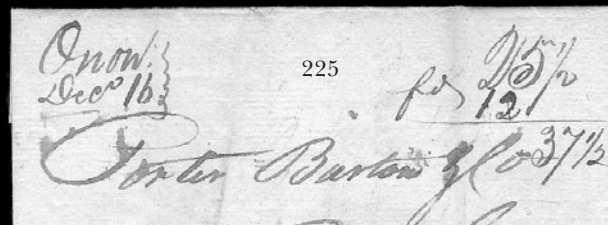 Onon.
Decr 16 225 for 25 1/2
12
Porter Barton & Co 37 1/2